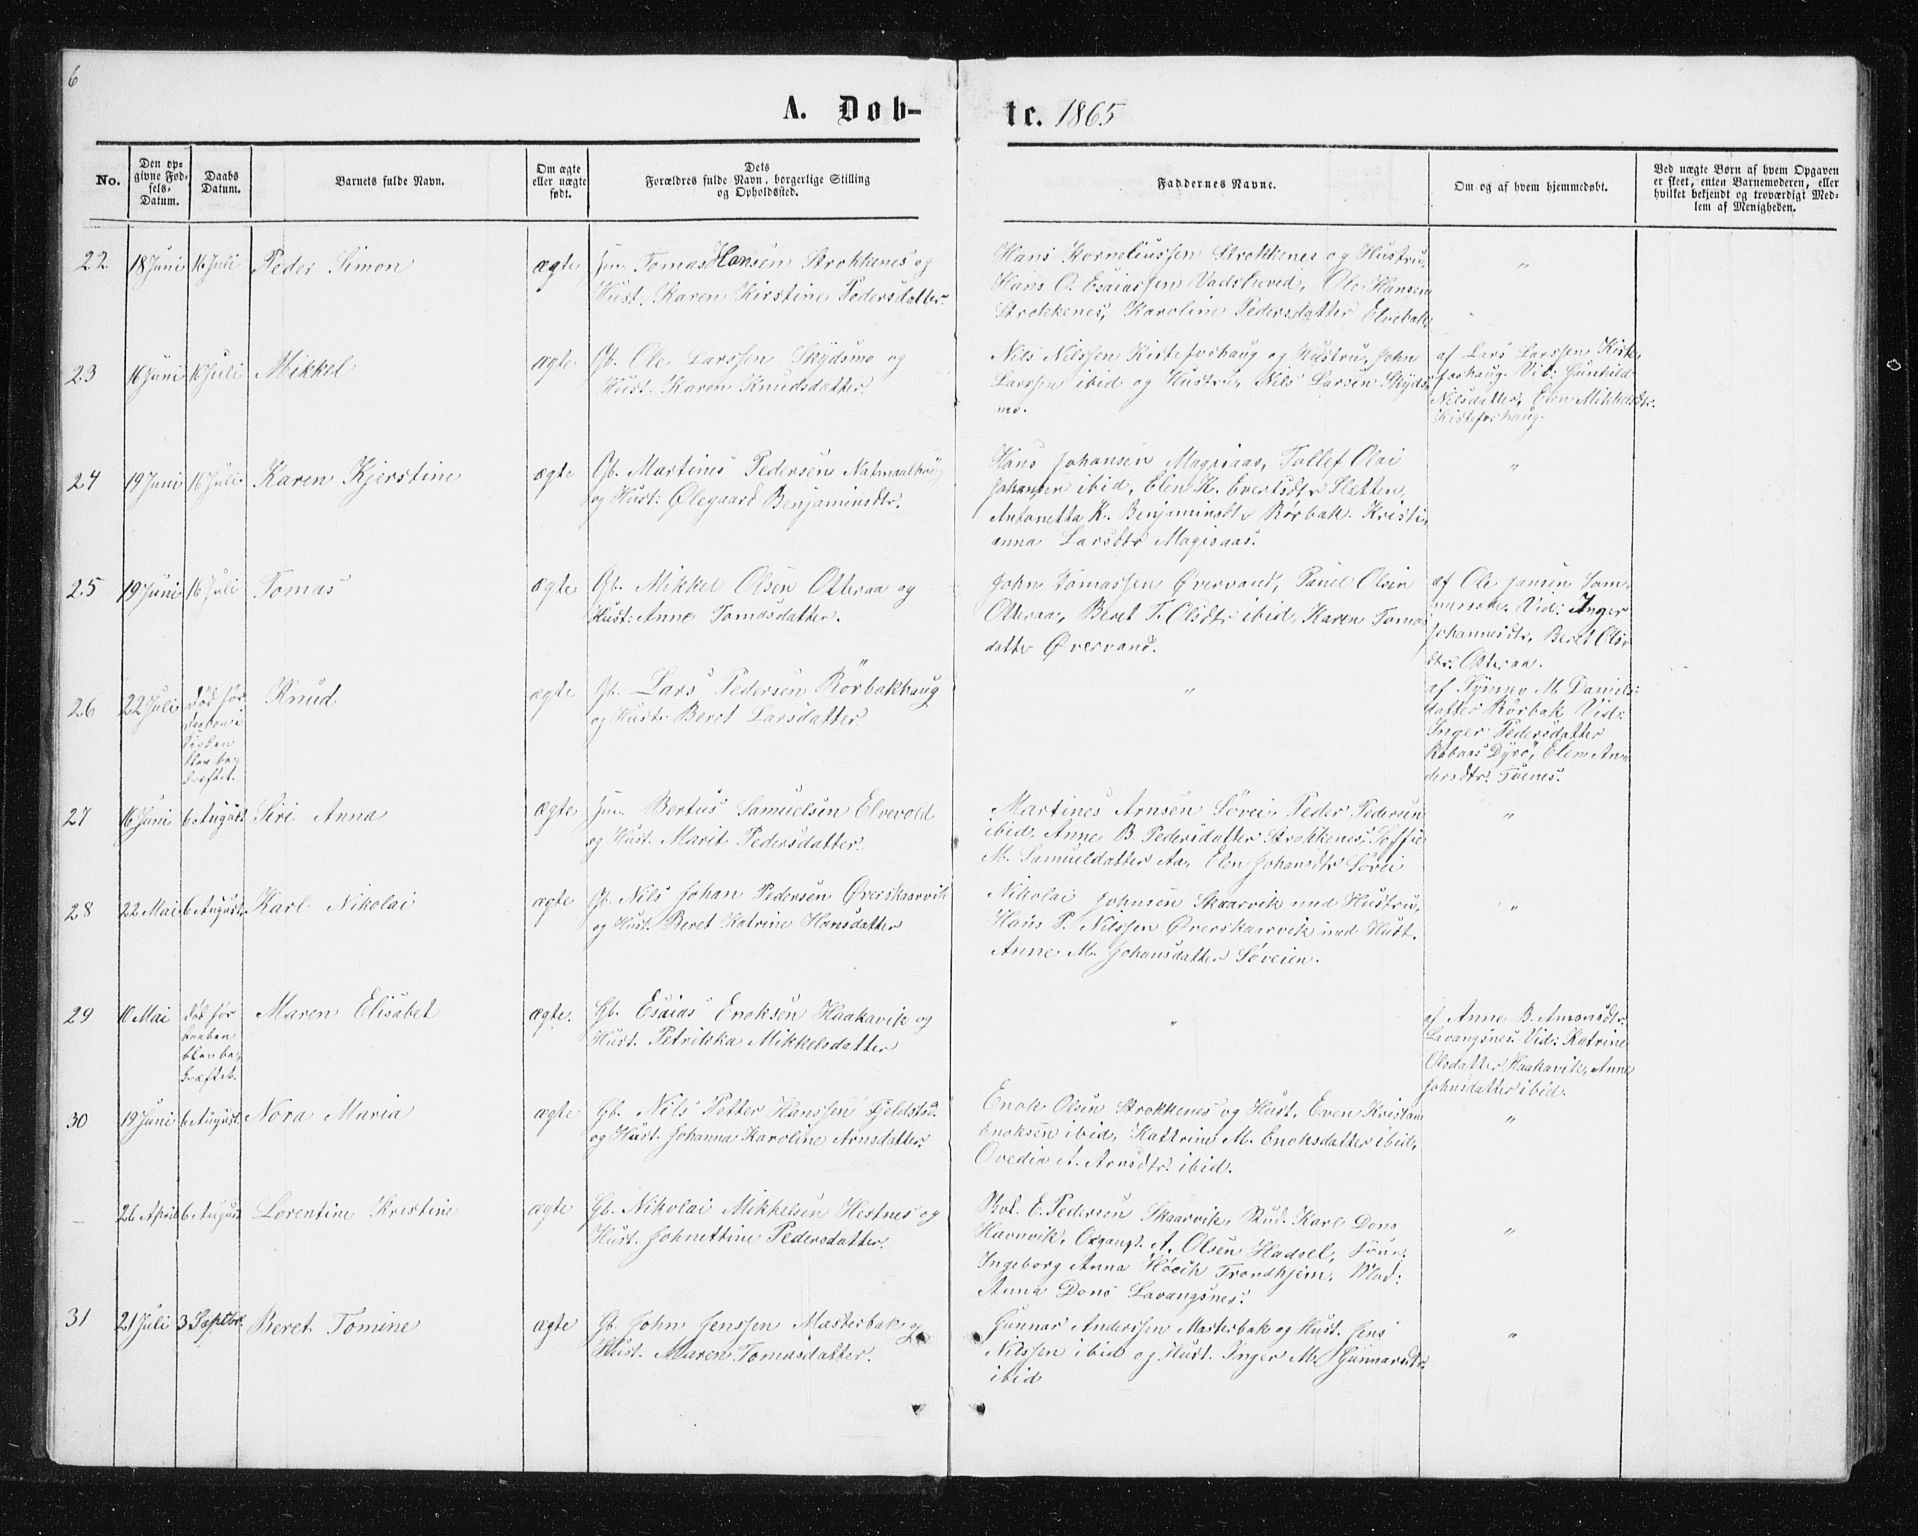 6
A. Døb-
te. 1865
No.
Den op-
givne Fød-
sels-
Datum.
Daabs
Datum.
Barnets fulde Navn.
Om ægte
eller uægte
født.
Dets
Forældres fulde Navn, borgerlige Stilling
og Opholdssted.
Faddernes Navne.
Om og af hvem hjemmedøbt.
Ved uægte Børn af hvem Opgaven
er skeet, enten Barnemoderen, eller
hvilket bekjendt og troværdigt Med-
lem af Menigheden.
22 18 Juni 16 Juli Peder Simon ægte Tomas Hansen Strokkenes og
Hust. Karen Kirstine Pedersdatter.
Hans Korneliussen Strokkenes og Hustru,
Hans O. Esaiassen Vadshoved, Ole Hansen
Strokkenes, Karoline Pedersdatter Elvebak.
"
23 16 Juni 16 Juli Mikkel ægte Gb. Ole Larssen Skydsmo og
Hust. Karen Knudsdatter.
Nils Nilssen Kistefoshaug og Hustru, John
Larssen ibid og Hustru, Nils Larsen Skyds-
mo.
af Lars Larssen Kiste-
foshaug. Vid: Gunhild
Nilsdatter, Elen Mikkelsdtr.
Kistefoshaug.
24 19 Juni 16 Juli Karen Kjerstine ægte Gb. Martines Pedersen
og Hust: Ølegaard Benjaminsdtr.
Hans Johansen Magisaas, Tollef Olai
Johansen ibid, Elen K. Evertsdtr Sletten,
Antonetta K. Benjaminsdtr Rørbak. Kristi-
anna Larsdtr Magisaas.
"
25 19 Juni 16 Juli Tomas ægte Gb. Mikkel Olsen Otteraa og
Hust: Anne Tomasdatter.
John Tomassen Øvervand, Paul Olsen
Otteraa, Beret T. Olsdtr ibid, Karen Tomas
datter Øvervand.
af Ole Jansen
Vid: Inger
Johannesdtr, Beret Ols-
dtr. Otteraa.
26 22 Juli død før
daaben i
Kirken
blev be-
kræftet.
Knud ægte Gb. Lars Pedersen Rörbakhaug
og Hust: Beret Larsdatter.
"
af Synnev M. Daniels-
datter Rörbak Vid:
Inger Pedersdatter
Dyrö, Elen An-
dersdtr.
27 16 Juni 6 August Siri Anna ægte Bertus Samuelsen Elvevold
og Hust. Marit Pedersdatter.
Martines Arnsen Søvei, Peder Pedersen
ibid, Anne B Pedersdatter Strokkenes, Soffie
M. Samueldatter Aa, Elen Johansdtr Søvei
"
28 22 Mai 6 August Karl Nikolai ægte Gb. Nils Johan Pedersen Øverskaarvik
og Hust. Beret Katrine Hansdatter
Nikolai Johnsen Skaarvik med Hustru,
Hans P. Nilssen Øverskaarvik med Hust.
Anne M. Johansdatter Søveien.
"
29 10 Mai død før
daaben
blev be-
kræftet.
Maren Elisabet ægte. Gb. Esaias Enoksen Haakavik og
Hust. Petrikka Mikkelsdatter
"
af Anne B. Amonsdtr.
Lavangsnes. Vid: Katrine
Olsdatter Haakavik, Anne
Johnsdatter ibid.
30 19 Juni 6 August Nora Maria ægte Gb. Nils Petter Hanssen Fjeldstad
og Hust. Johanna Karoline Arnsdatter.
Enok Olsen Strokkenes og Hust. Even Kristian
Enoksen ibid, Kattrine M. Enoksdatter ibid,
Ovedia A. Arnsdtr. ibid.
"
- 26 April 6 August Lorentine Kristine ægte Gb. Nikolai Mikkelsen Hestnes og
Hust. Johnettine Pedersdatter.
E. Pedersen Skaarvik, Stud. Karl Dons
Havnvik, Organst. A. Olsen Hadsel,
Ingeborg Anna Trondhjem, Mad:
Anna Dons Lavangsnes.
"
31 21 Juli 3 Septbr. Beret Tomine ægte Gb. John Jenssen Masterbak og
Hust. Maren Tomasdatter.
Gunnar Anderssen Masterbak og Hust. Jens
Nilssen ibid og Hust. Inger M. Gunnarsdtr.
ibid
"